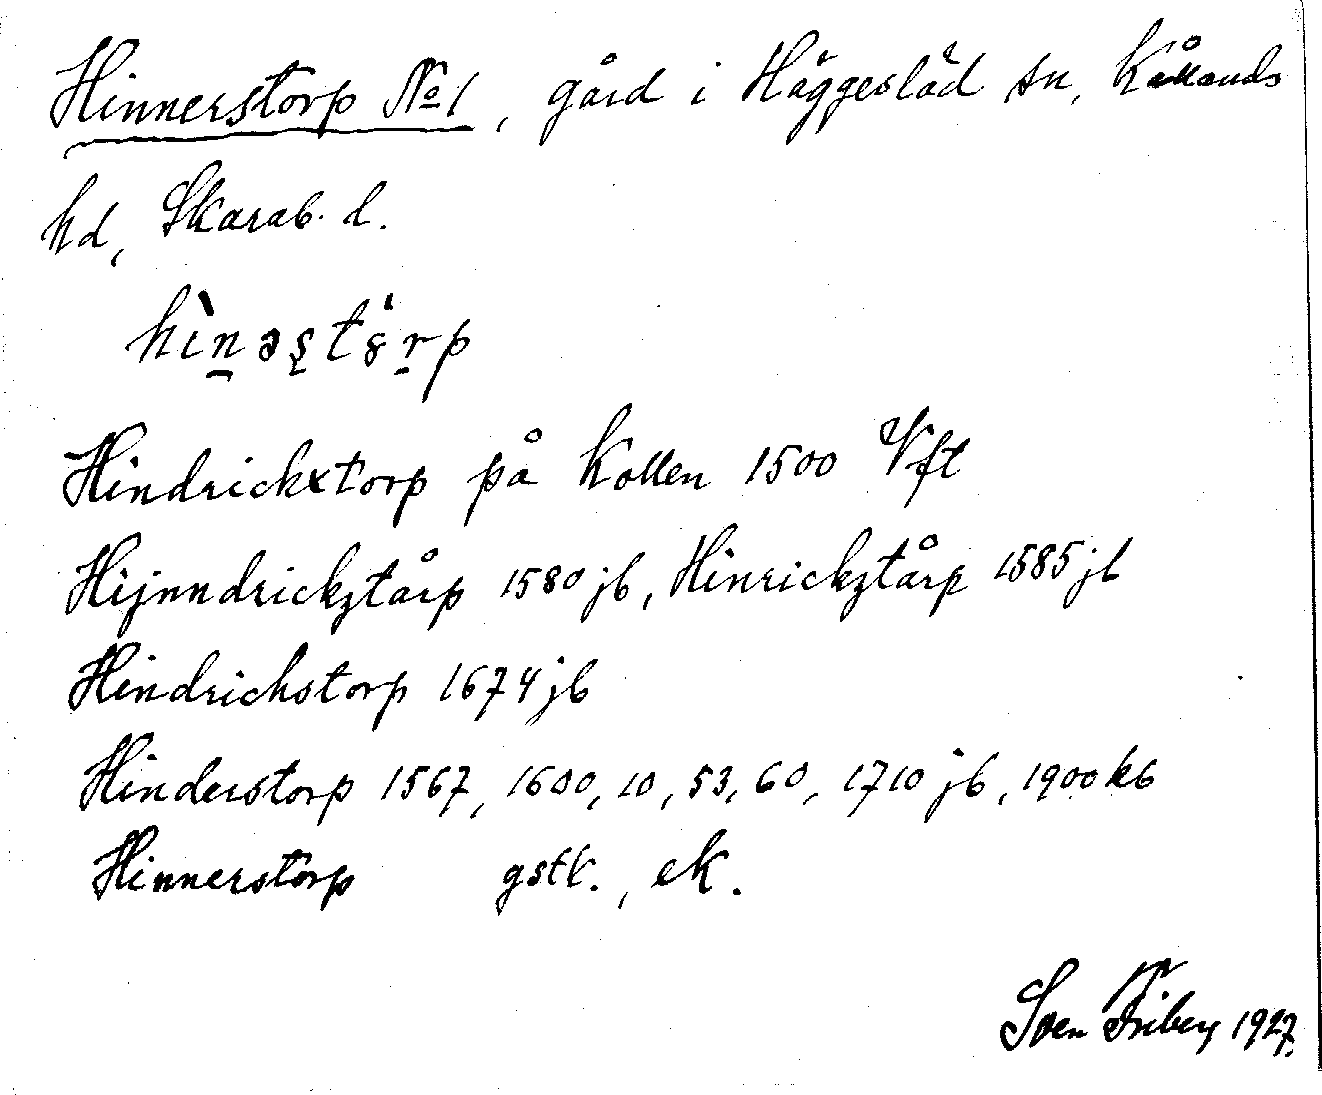 Hinnerstorp No 1, gård i Häggesläd sn, Kållands
hd, Skarab. l.
hìnəs̨tòrp
Hindrickxtorp på Kollen 1500 Vft
Hijnndrickztårp 1580 jb, Hinrickztårp 1585 jb
Hindrichstorp 1674 jb
Hinderstorp 1567, 1600, 10, 53, 60, 1710 jb, 1900 kb
Hinnerstorp gstk., ek.
Sven Friberg 1927.